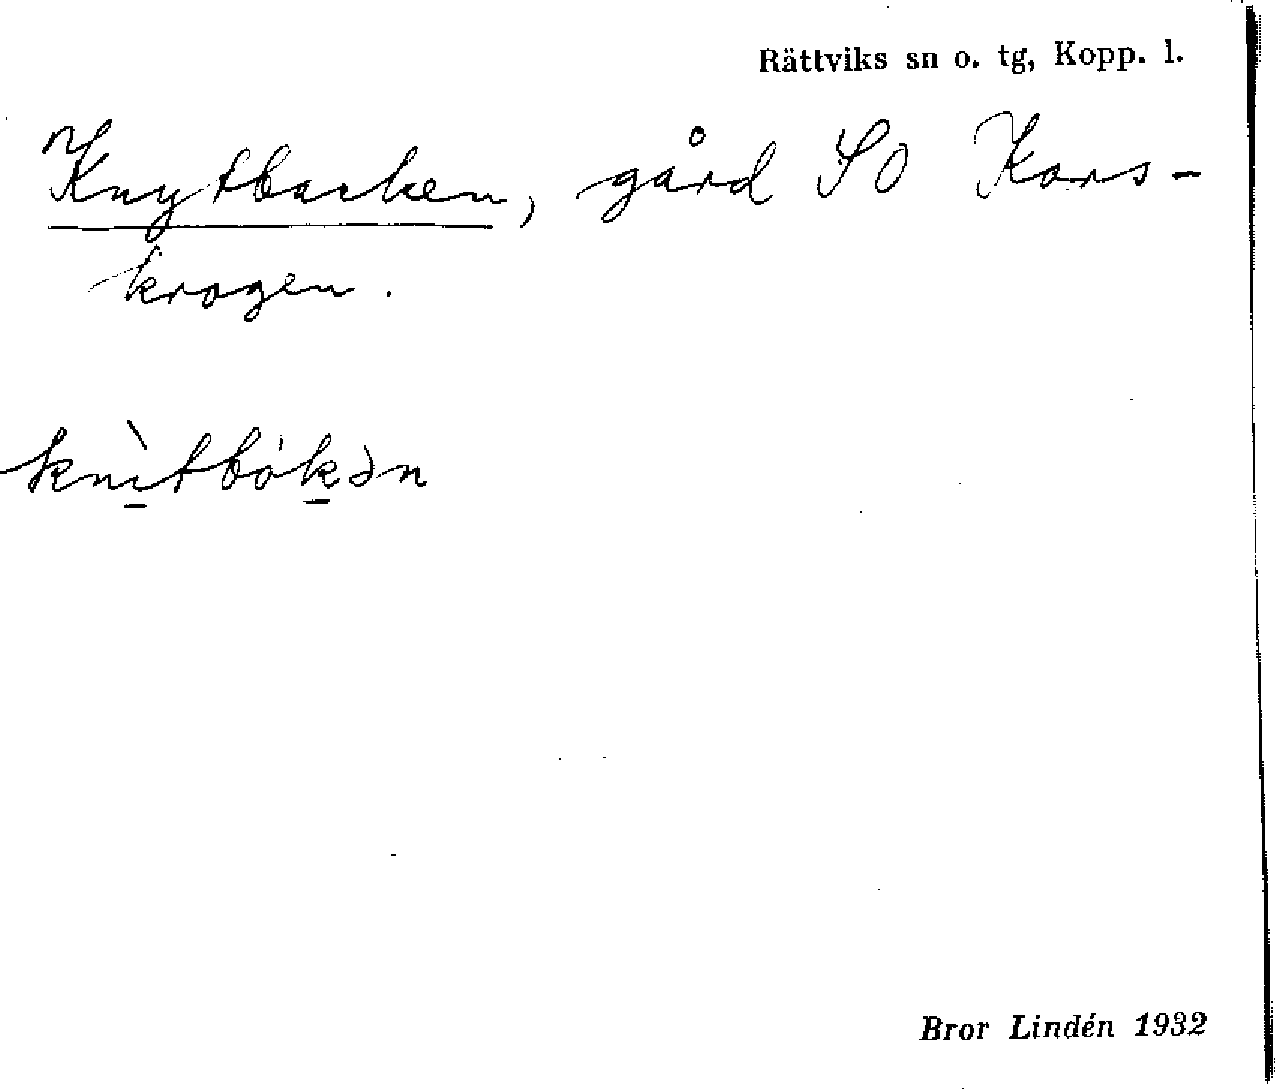 Rättviks sn o. tg, Kopp. l.
Knytbacken, gård SO Kors-
krogen.
knı̀tbókən
Bror Lindén 1932